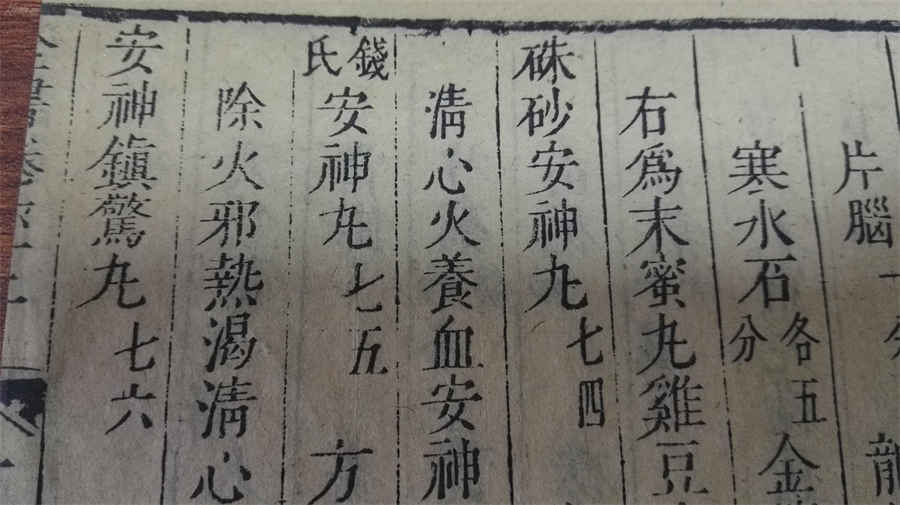 片腦一
寒水石各五分金
右爲末蜜丸雞豆
硃砂安神丸七四
淸心火養血安神
錢氏安神丸七五方
除火邪熱渴淸心
安神鎭驚丸七六